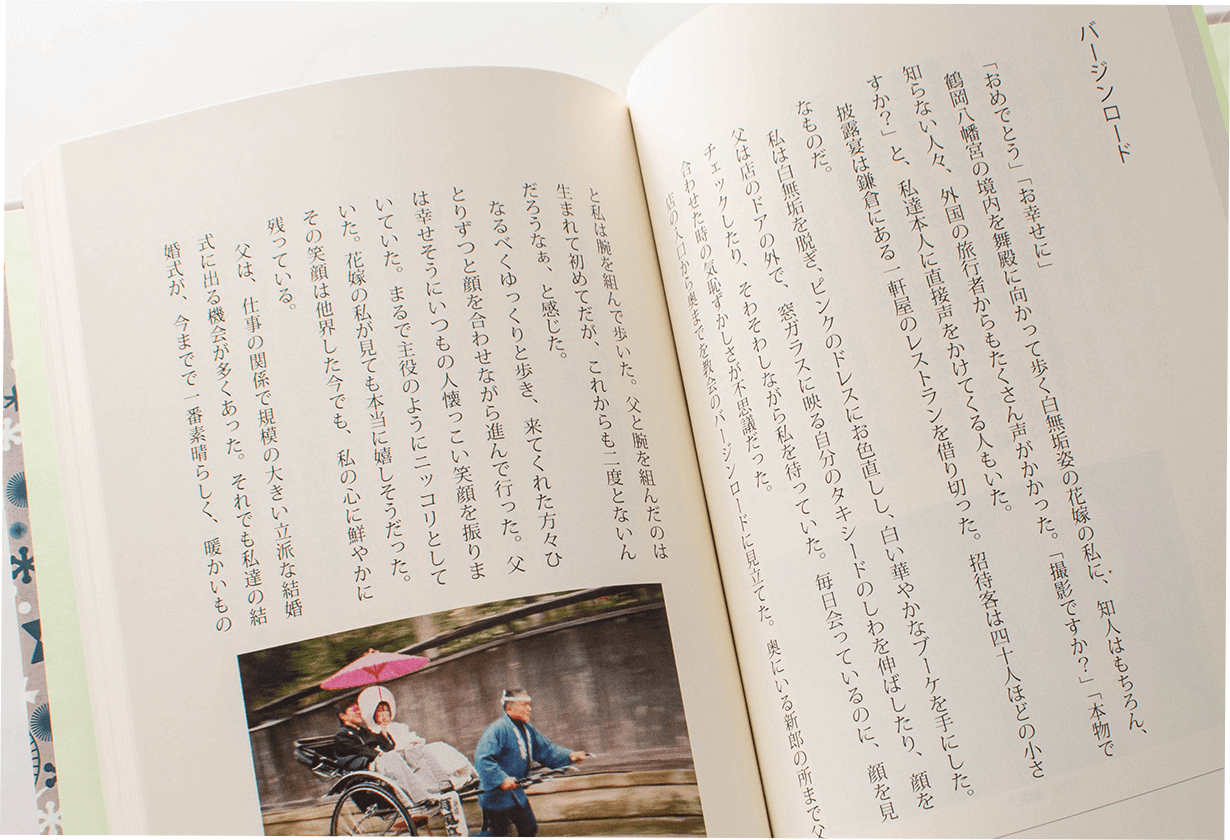 バージンロード
「おめでとう」「お幸せに」
鶴岡八幡宮の境内を舞殿に向かって歩く白無垢姿の花嫁の私に、知人はもちろん、
知らない人々、外国の旅行者からもたくさん声がかかった。「撮影ですか?」「本物で
すか?」と、私達本人に直接声をかけてくる人もいた。
披露宴は鎌倉にある一軒屋のレストランを借り切った。招待客は四十人ほどの小さ
なものだ。
私は白無垢を脱ぎ、ピンクのドレスにお色直しし、白い華やかなブーケを手にした。
父は店のドアの外で、窓ガラスに映る自分のタキシードのしわを伸ばしたり、顔を
チェックしたり、そわそわしながら私を待っていた。毎日会っているのに、顔を見
合わせた時の気恥ずかしさが不思議だった。
店の入口から奥までを教会のバージンロードに見立てた。奥にいる新郎の所まで父
と私は腕を組んで歩いた。父と腕を組んだのは
生まれて初めてだが、これからも二度とないん
だろうなぁ、と感じた。
なるべくゆっくりと歩き、来てくれた方々ひ
とりずつと顔を合わせながら進んで行った。父
は幸せそうにいつもの人懐っこい笑顔を振りま
いていた。まるで主役のようにニッコリとして
いた。花嫁の私が見ても本当に嬉しそうだった。
その笑顔は他界した今でも、私の心に鮮やかに
残っている。
父は、仕事の関係で規模の大きい立派な結婚
式に出る機会が多くあった。それでも私達の結
婚式が、今までで一番素晴らしく、暖かいもの